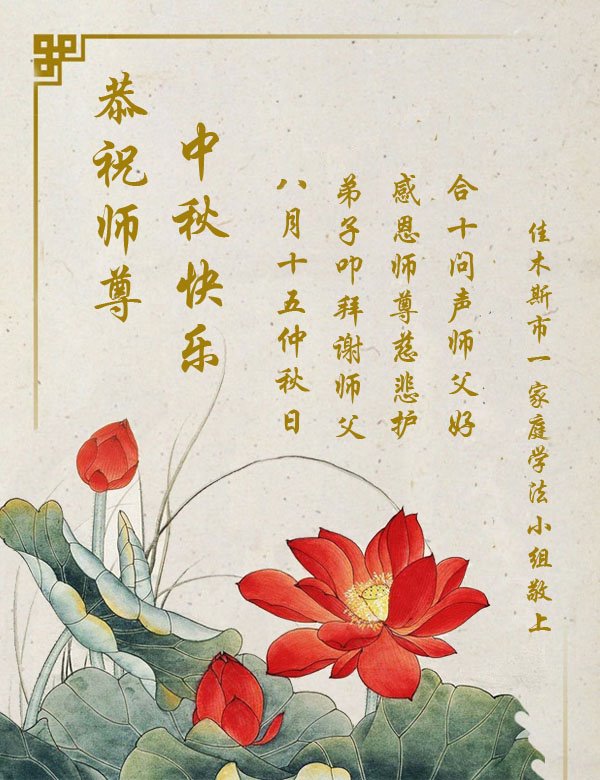 恭祝师尊
中秋快乐
八月十五仲秋日
弟子叩拜谢师父
感恩师尊慈悲护
合十问声师父好
佳木斯市一家庭学法小组敬上